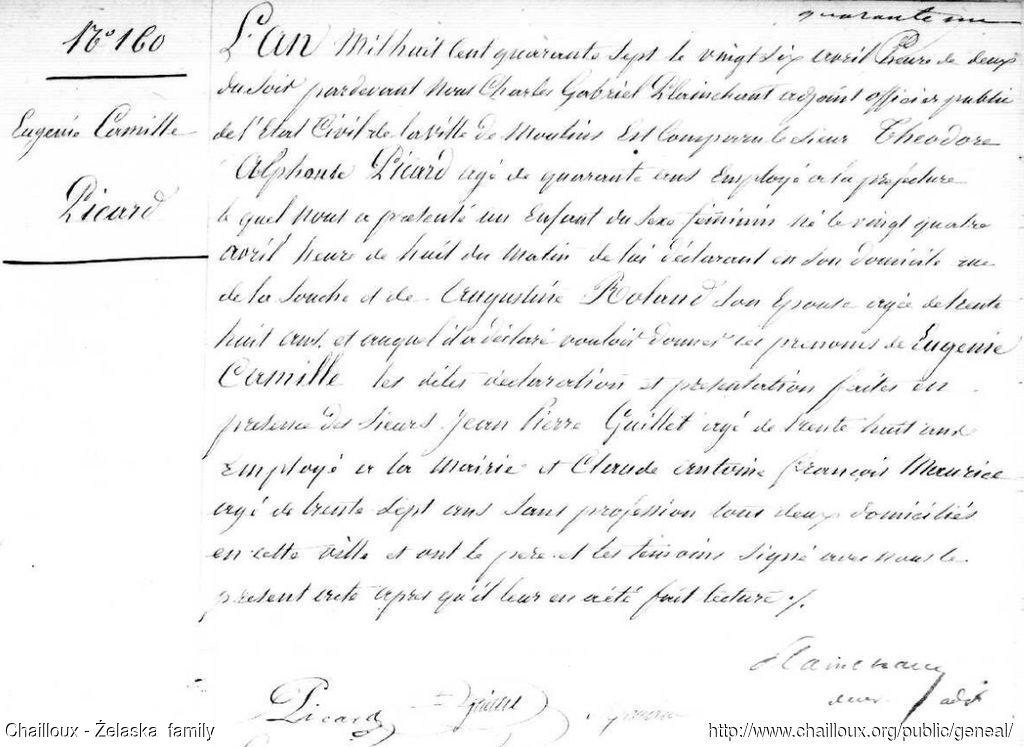 quarante un
N° 160
Eugenie Camille
Picard
L'an Mil huit Cent quarante Sept le vingt six avril heure de deux
du Soir pardevant Nous Charles Gabriel Plainchant adjoint officier public
de l'Etat Civil de la ville de Moulins Est Comparu le Sieur Theodore
Alphonse Picard agé de quarante ans Employé a la préfecture
le quel nous a présenté un Enfant du Sexe féminin né le vingt quatre
avril heure de huit du Matin de lui déclarant en son domicile rue
de la Souche et de Augustine Roland Son Epouse agée de trente
huit ans. et auquel il a déclaré vouloir donner les prenoms de Eugenie
Camille les dites declaration et presentation faites en
presence des Sieurs Jean Pierre Guillet agé de trente huit ans
Employé a la Mairie et Claude antoine françois Maurice
agé de trente Sept ans Sans profession tous deux domiciliés
en cette ville et ont le pere et les témoins Signé avec nous le
present acte apres qu'il leur en a été fait lecture ./.
Plainchant
Picard
adj
Chailloux - Żelaska family
http://www.chailloux.org/public/geneal/